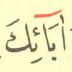 اٰبَآئِكَ